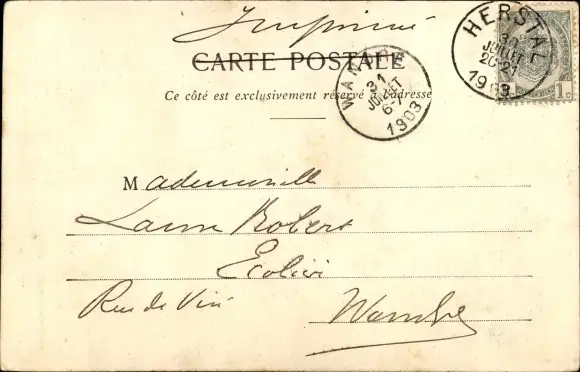 Imprimé
CARTE POSTALE
Ce côté est exclusivement réservé à l'adresse
HERSTAL
JUILLET
20-21
1903
1c
WANDRE
31
JUILLET
6-7
1903
Mademoiselle
Laure Robert
Ecolière
Rue de Visé Wandre